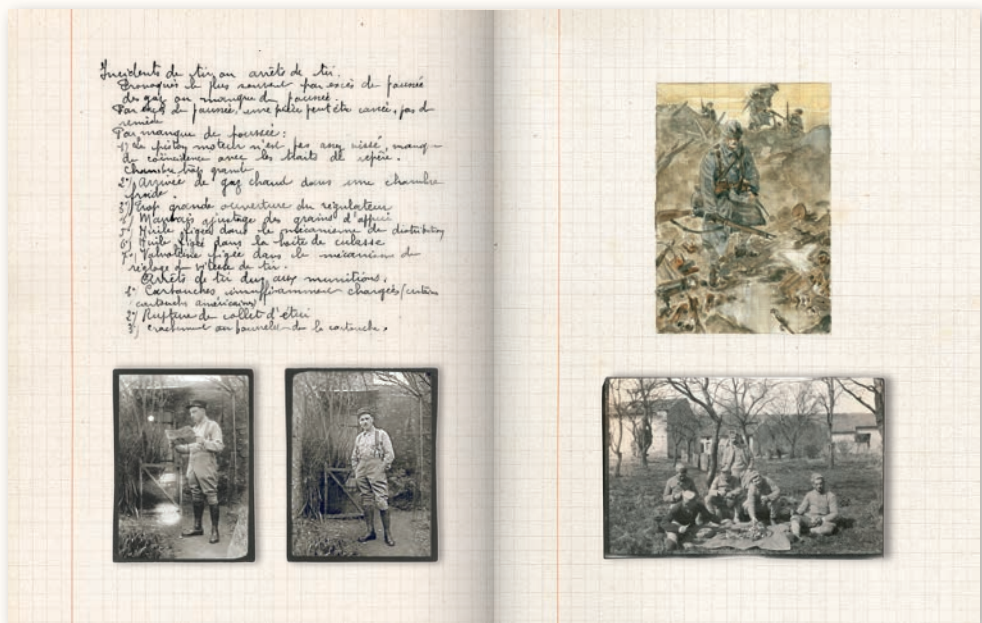 Incidents de tir ou arrêts de tir.
Provoqués le plus souvent par excès de poussée
des gaz ou manque de poussée.
Par excès de poussée, une pièce peut être cassée, pas de
remède
Par manque de poussée :
1°) Le piston moteur n'est pas assez vissé, manque
de coïncidence avec les traits de repère.
Chambre trop grande
2°) Arrivée de gaz chaud dans une chambre
froide.
3°) Trop grande ouverture du régulateur
4°) Mauvais ajustage des grains d'appui
5°) Huile figée dans le mécanisme de distribution
6°) Huile figée dans la boîte de culasse
7°) Valvoline figée dans le mécanisme de
réglage de vitesse de tir.
Arrêts de tir dus aux munitions.
1° Cartouches insuffisamment chargées (certaines
cartouches américaines)
2°) Rupture de collet d'étui
3°) crachement au pourtour de la cartouche.